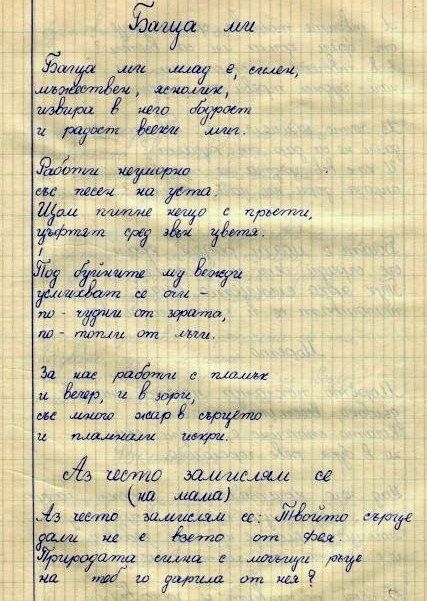 Баща ми
Баща ми млад е, силен,
мъжествен, ясполик,
извира в него бодрост
и радост всеки миг.
Работи неуморно
със песен на уста.
Щом пипне нещо с пръсти,
цъфтят сред звън цветя.
Под буйните му вежди
усмихват се очи –
по-чудни от зората,
по-топли от лъчи.
За нас работи с пламък
и вечер, и в зори,
със много жар в сърцето
и пламнали искри.
Аз често замислям се
(на мама)
Аз често замислям се: Твойто сърце
дали не е взето от фея.
Природата силна с могъщи ръце
на теб го дарила от нея?